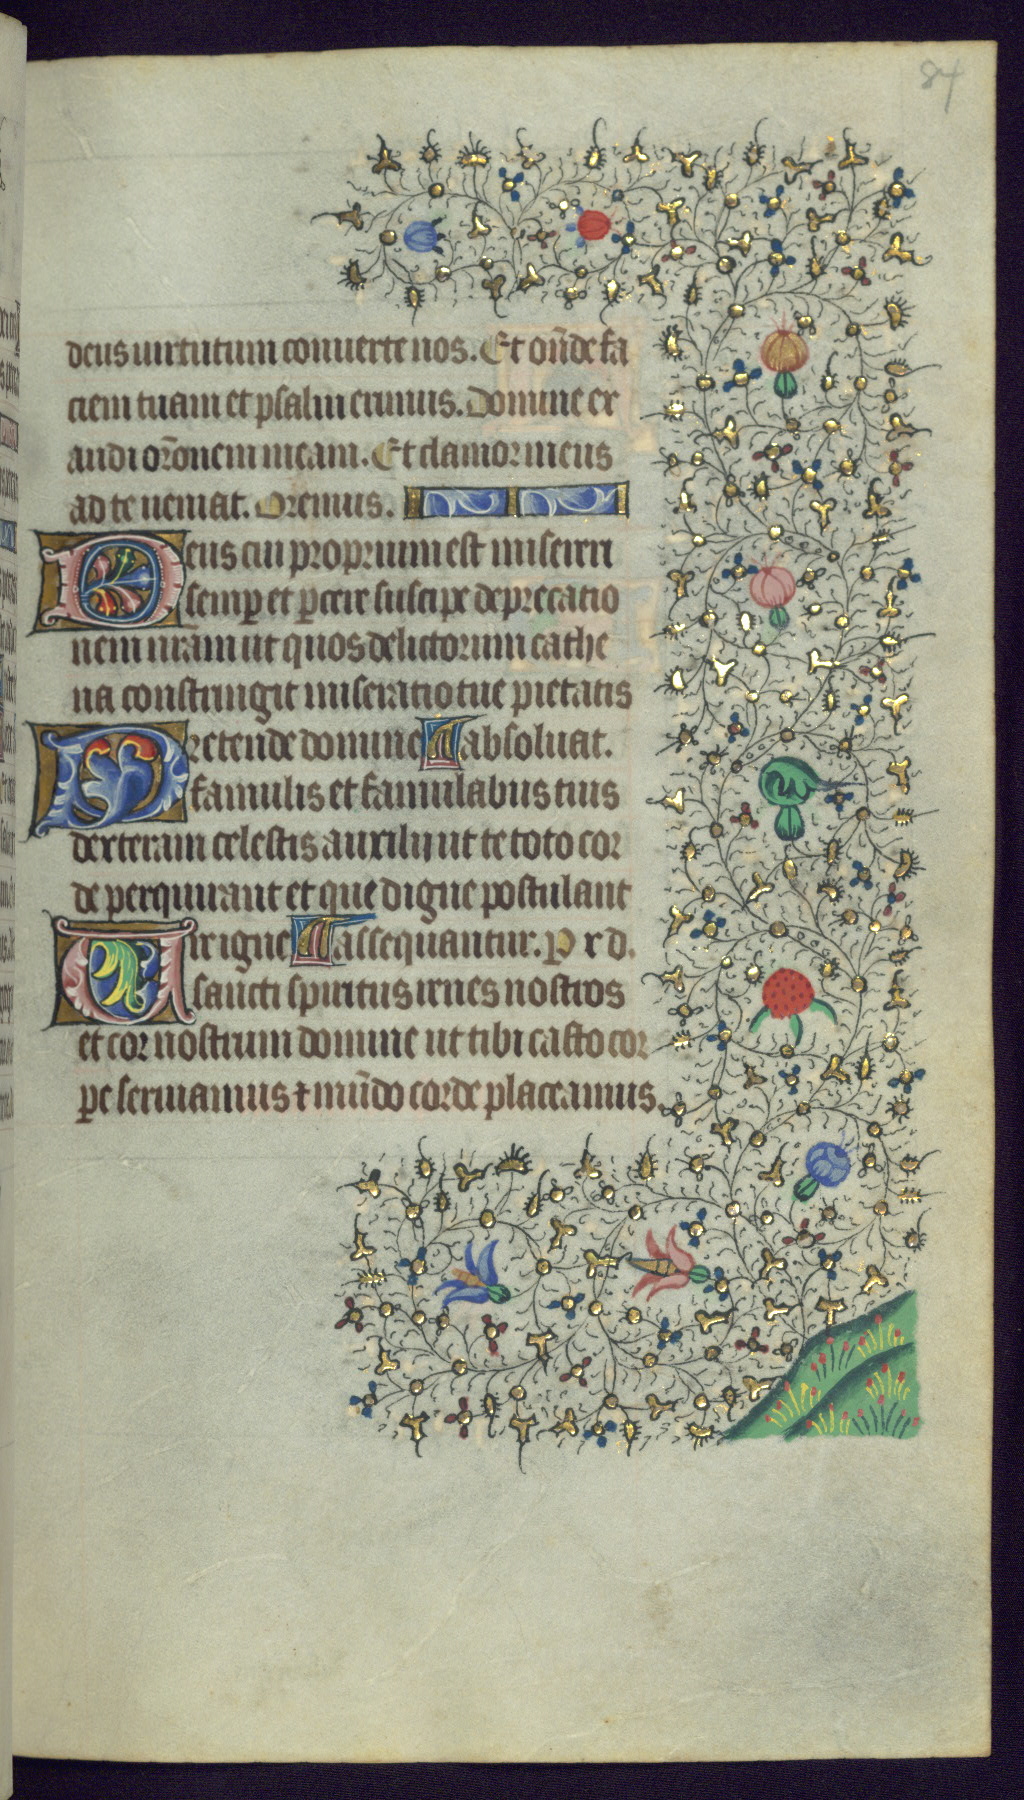 84
deus uirtutum conuerte nos. Et on̄de fa
ciem tuam et psalmi erimus. Domine ex
audi or̄onem meam. Et clamor meus
ad te ueniat. Oremus.
Deus cui proprium est misereri
semꝑ et ꝑcere suscipe deprecatio
nem nr̄am ut quos delictorum cathe
na constringit miseratio tue pietatis
Pretende domine absoluat.
famulis et famulabus tuis
dexteram celestis auxilij ut te toto cor
de perquirant et que digne postulant
Ure igne assequantur. P x d.
sancti spiritus renes nostros
et cor nostrum domine ut tibi casto cor
pe seruiamus ⁊ mūdo corde placeamus.